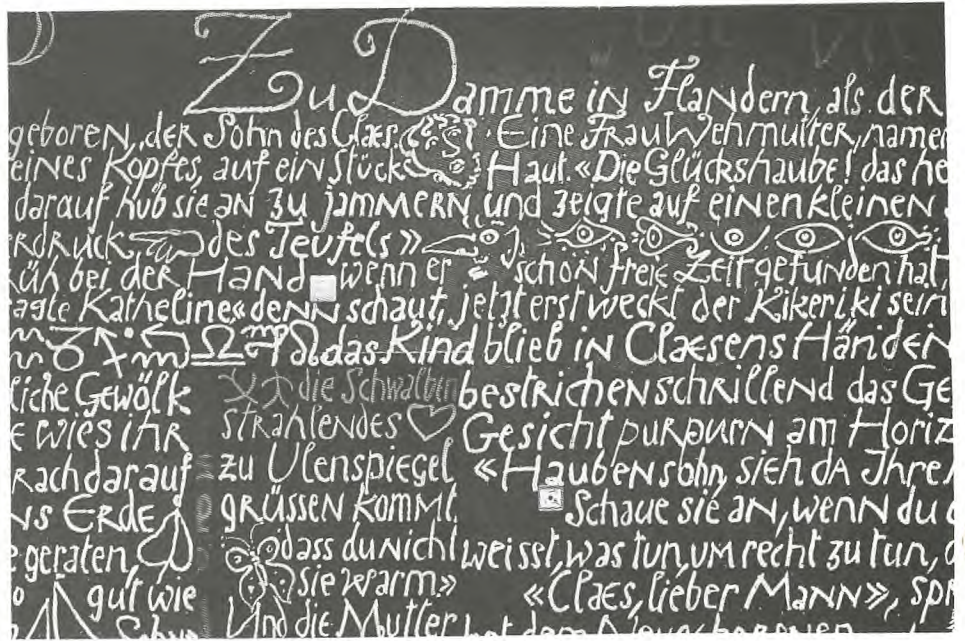 Zu Damme in Flandern, als der
geboren, der Sohn des Claes. Eine Frau Wehmutter, namen
eines Kopfes, auf ein Stück Haut. «Die Glückshaube! das he
darauf hub sie an zu jammern und zeigte auf einen kleinen
erdruck des Teufels»
rüh bei der Hand wenn er schon freie Zeit gefunden hat,
agte Katheline «denn schaut, jetzt erst weckt der Kikeriki sein
das Kind blieb in Claesens Händen
liche Gewölk die Schwalben bestrichen schrillend das Ge
e wies ihr strahlendes Gesicht purpurn am Horiz
rach darauf zu Ulenspiegel «Haubensohn, sieh da Ihre
ns Erde grüssen kommt. Schaue sie an, wenn du
geraten, dass du nicht weisst, was tun, um recht zu tun,
gut wie sie warm» «Claes, lieber Mann», spr
Und die Mutter hat dem Neugeborenen